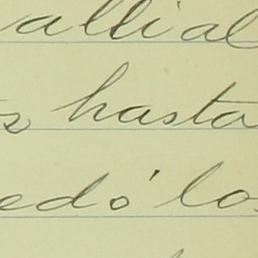 allí al
s hasta
edó los